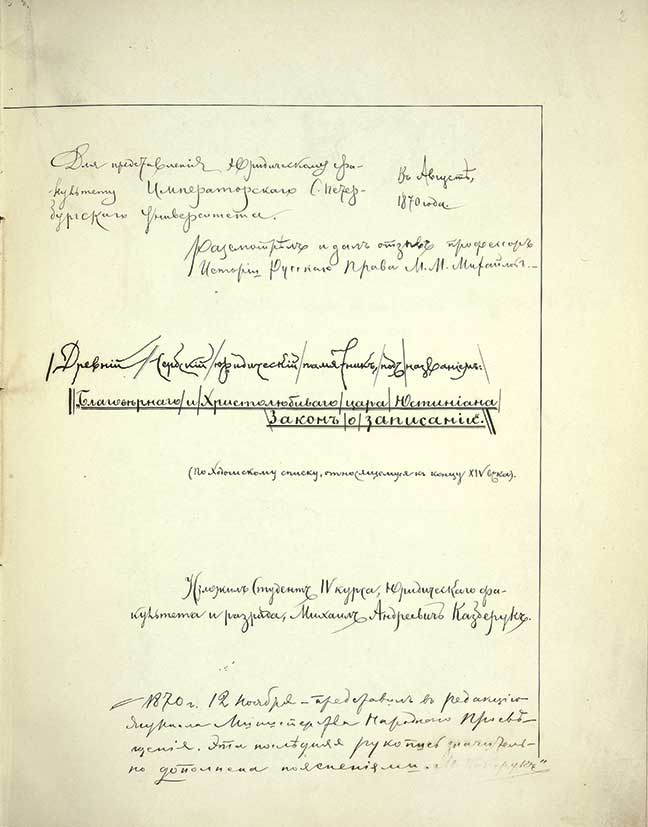 2
Для представленія Юридическому фа-
культету Императорскаго С. Петер-
бургскаго Университета.
Въ Августѣ,
1870 года.
Разсмотрѣлъ и далъ отзывъ профессоръ
Исторіи Русскаго Права М. М. Михайловъ.
Древній Сербскій юридическій памятникъ, подъ названіемъ:
"Благовѣрнаго и Христолюбиваго царя Юстиніана
Законъ о записаніи".
(По списку, относящемуся къ концу XIV вѣка).
Изложилъ Студентъ IV курса, Юридическаго фа-
культета и разряда, Михаилъ Андреевичъ
"1870 г. 12 Ноября – представилъ въ редакцію
Журнала Министерства Народнаго Просвѣ-
щенія. Эта послѣдняя рукопись значитель-
но дополнена поясненіями.